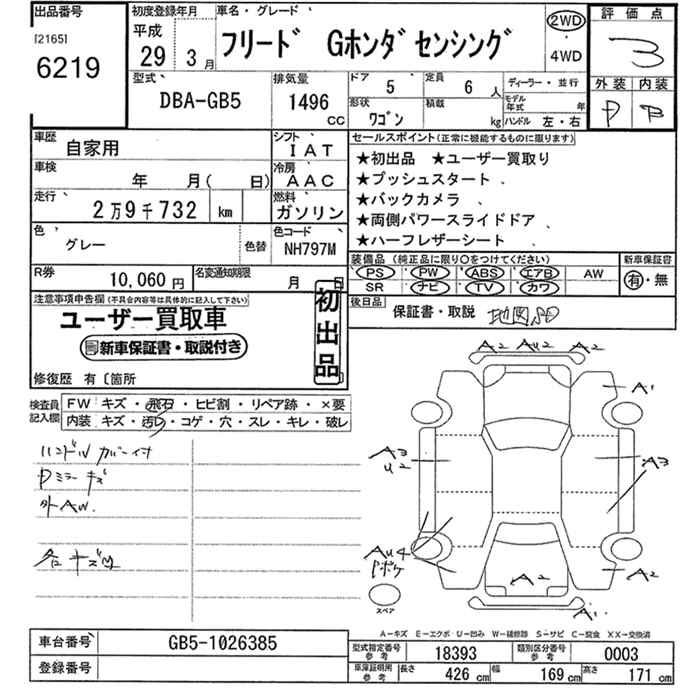 出品番号
[2165]
6219
初度登録年月
平成
29 3月
車名・グレード
フリード Gホンダセンシング
2WD
・
4WD
評価点
3
外装 内装
D D
型式
DBA-GB5
排気量
1496
CC
ドア
5
定員
6 人
形状
ワゴン
積載
kg
ディーラー・並行
モデル年式 年
ハンドル 左・右
車歴
自家用
シフト
IAT
車検
年 月( 日)
冷房
AAC
走行
2万9千732 km
燃料
ガソリン
色
グレー
色替
色コード
NH797M
R券
10,060 円
名変通知期限
月 日
セールスポイント(正常に機能するものに限ります)
★初出品 ★ユーザー買取り
★プッシュスタート
★バックカメラ
★両側パワースライドドア
★ハーフレザーシート
装備品(純正品に限り○をつけてください)
PS PW ABS エアB AW
SR ナビ TV カワ
新車保証書
有・無
注意事項申告欄(不具合内容等は具体的に記入して下さい)
ユーザー買取車
新車保証書・取説付き
初出品
修復歴 有〔箇所
後日品
保証書・取説 地図
検査員記入欄
FW キズ・飛石・ヒビ割・リペア跡・×要
内装 キズ・汚レ・コゲ・穴・スレ・キレ・破レ
ハンドルカバー付
Dミラーキズ
外AW
各キズ凹
A2 AU2 A2
A1
A3
U2
A3
AU4
Dボケ
A2
A2
A1
スペア
A-キズ E-エクボ U-凹み W-補修跡 S-サビ C-腐食 XX-交換済
車台番号
GB5-1026385
登録番号
型式指定番号参考
18393
類別区分番号参考
0003
車庫証明用参考
長さ
426 cm
幅
169 cm
高さ
171 cm